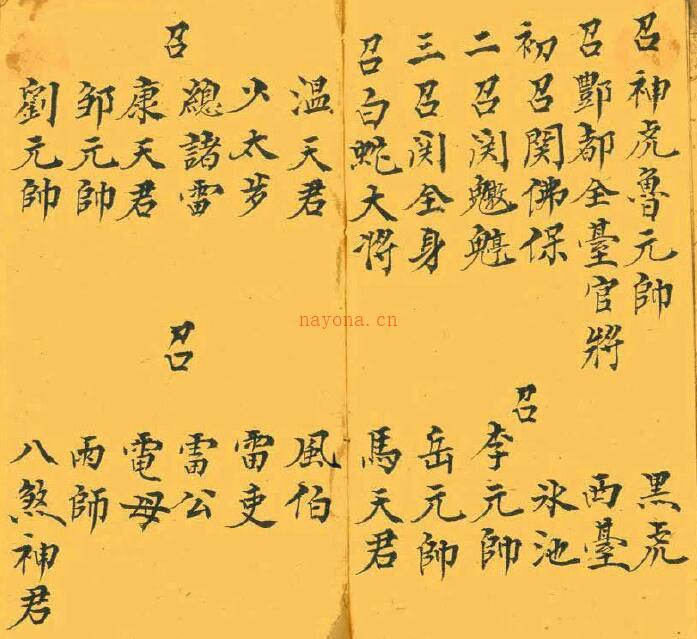 召神虎魯元帥
召酆都全臺官将
初召関佛保
二召関
三召関全身
召白蛇大将
召
黑虎
西臺
氷池
李元帥
岳元帥
馬天君
召
溫天君
火太歩
總諸雷
康天君
邹元帥
劉元帥
召
風伯
雷吏
雷公
電母
雨師
八煞神君
nayona.cn